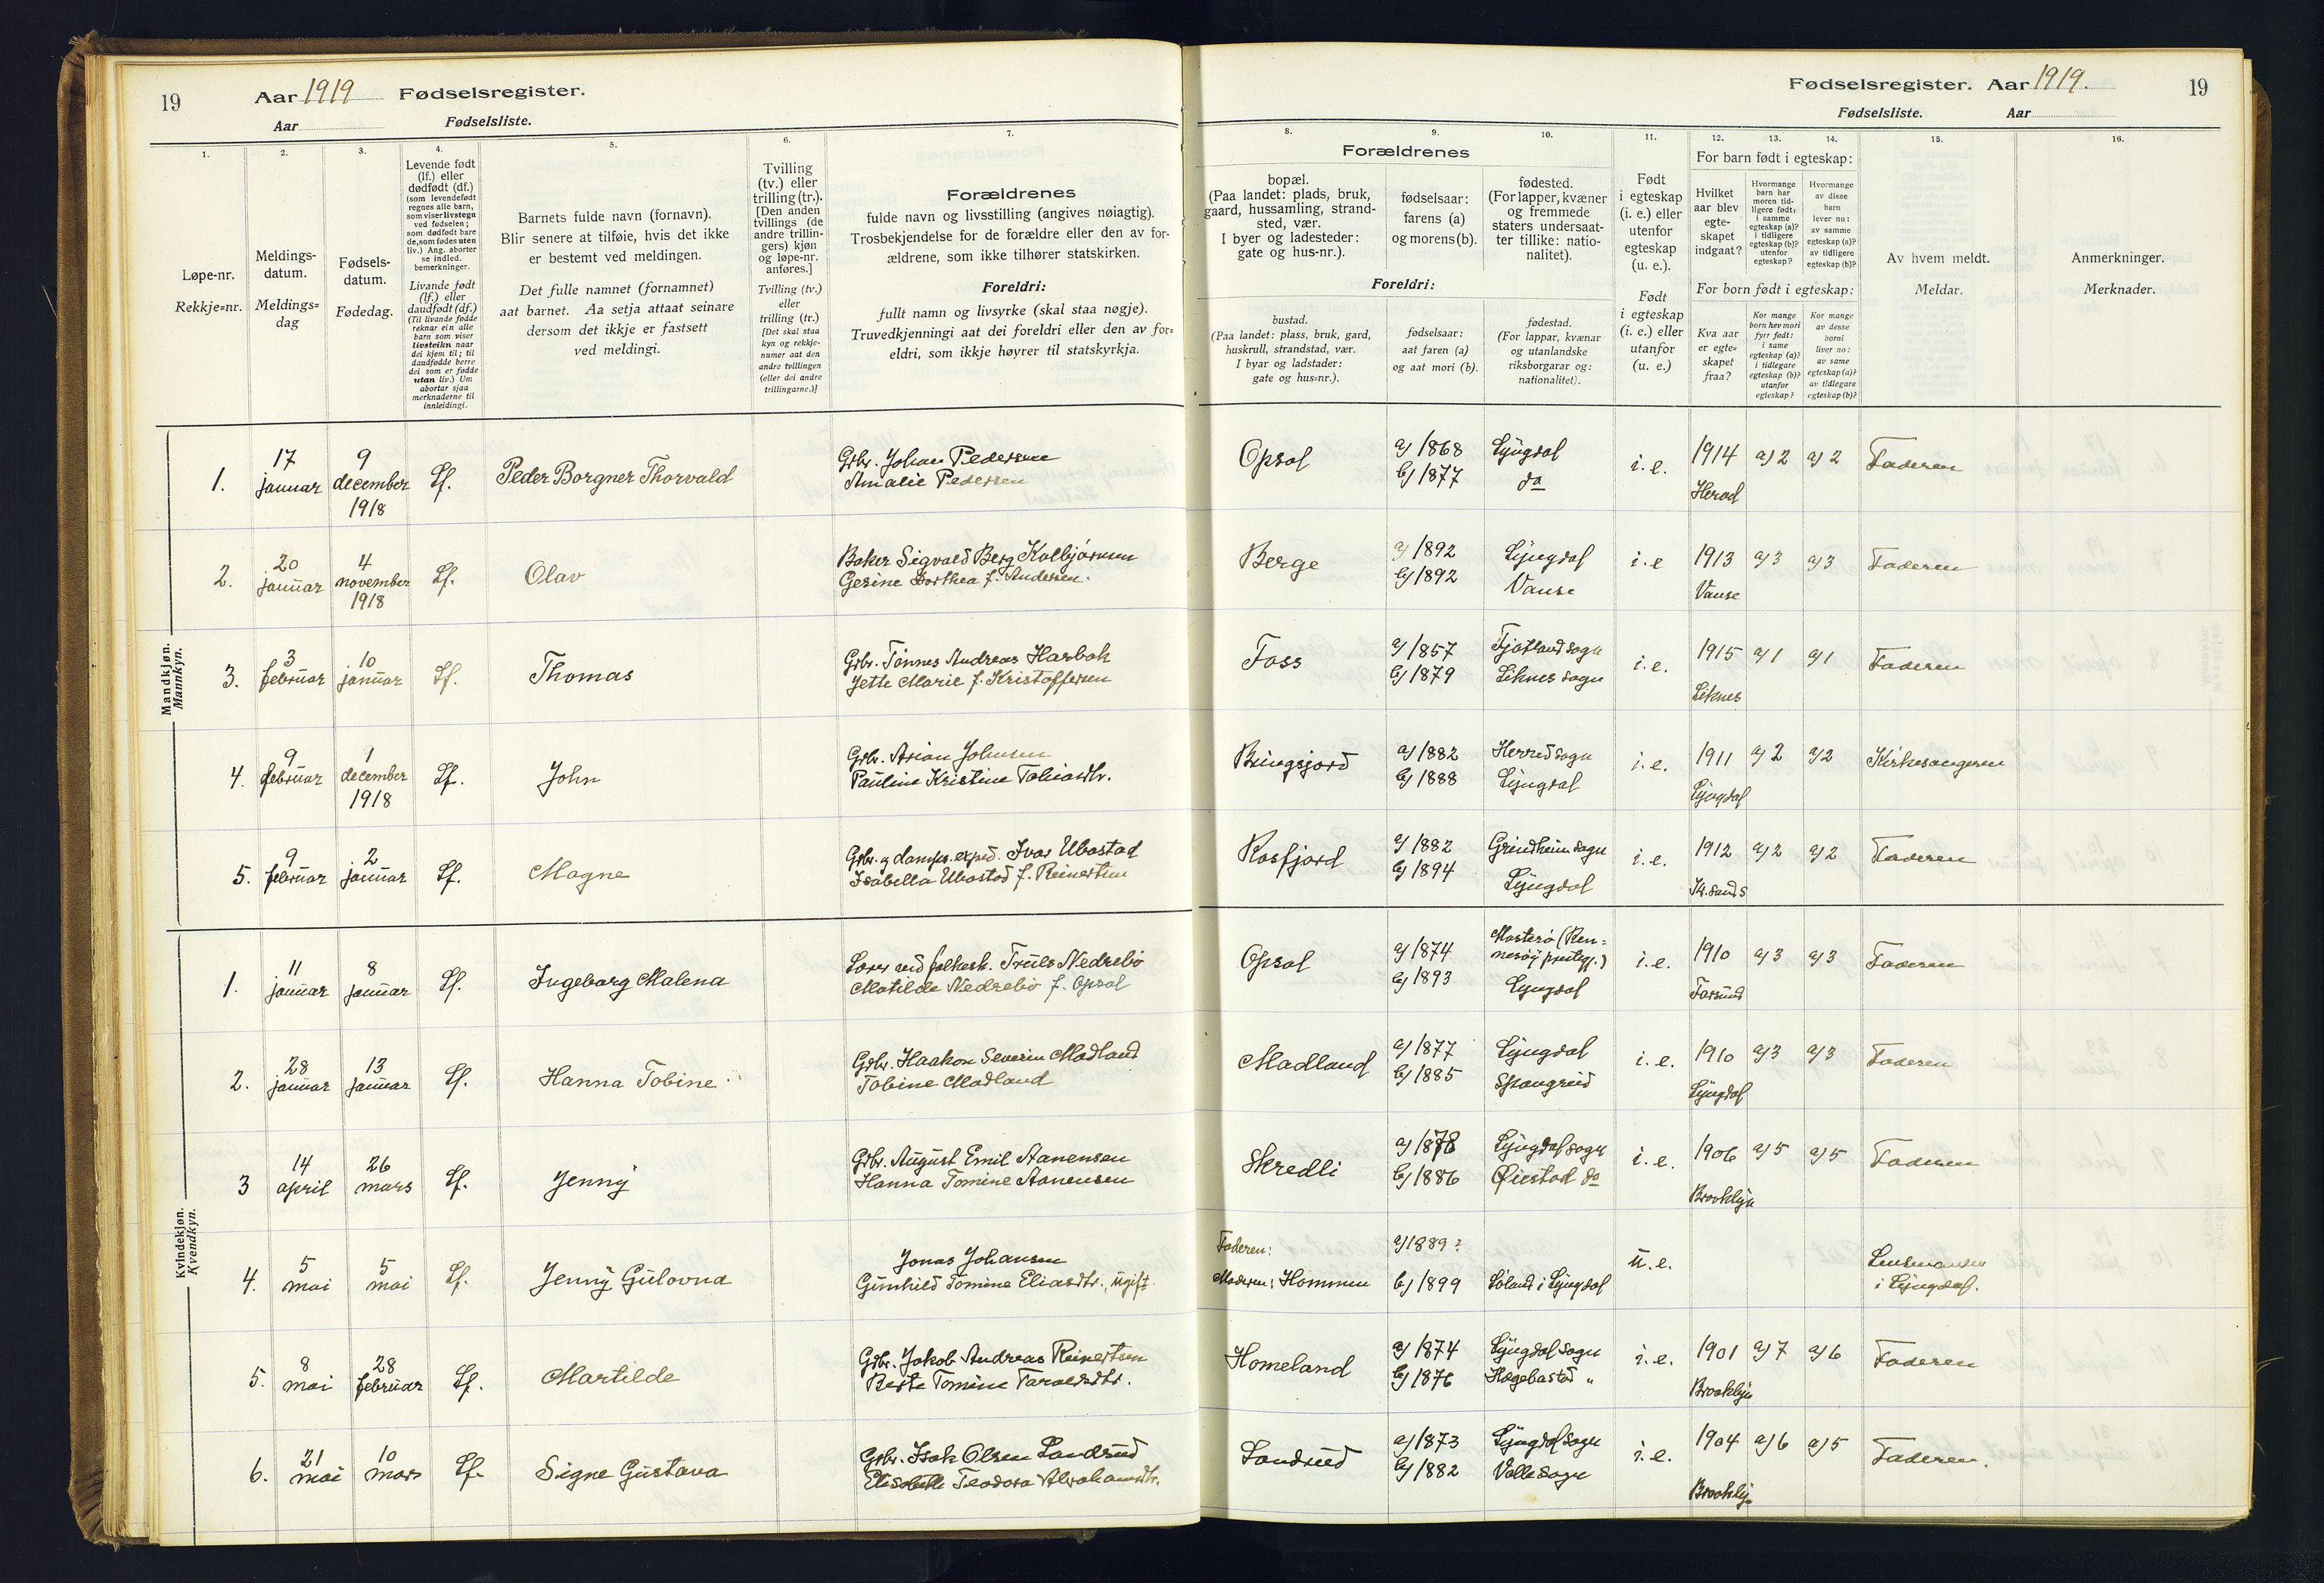 19
Aar 1919 Fødselsregister.
Aar Fødselsliste.
1.
2.
3.
4.
5.
6.
7.
Løpe-nr.
Rekkje=nr.
Meldings-
datum.
Meldings=
dag
Fødsels-
datum.
Fødedag.
Levende født
(lf.) eller
dødfødt (df.)
(som levendefødt
regnes alle barn,
som viser livstegn
ved fødselen;
som dødfødt bare
de, som fødes uten
liv.) Ang. aborter
se indled.
bemerkninger.
Livande født
(lf.) eller
daudfødt (df.)
(Til livande fødde
reknar ein alle
barn som viser
livsteikn naar
dei kjem til; til
daudfødde berre
dei som er fødde
utan liv.) Um
abortar sjaa
merknaderne til
innleidingi.
Barnets fulde navn (fornavn).
Blir senere at tilføie, hvis det ikke
er bestemt ved meldingen.
Det fulle namnet (fornamnet)
aat barnet. Aa setja attaat seinare
dersom det ikkje er fastsett
ved meldingi.
Tvilling
(tv.) eller
trilling (tr.).
[Den anden
tvillings (de
andre trillin-
gers) kjøn
og løpe-nr.
anføres.]
Tvilling (tv.)
eller
trilling (tr.)
[Det skal staa
kyn og rekkje-
numer aat den
andre tvillingen
(eller dei andre
trillingarne.)]
Forældrenes
fulde navn og livsstilling (angives nøiagtig).
Trosbekjendelse for de forældre eller den av for-
ældrene, som ikke tilhører statskirken.
Foreldri:
fullt namn og livsyrke (skal staa nøgje).
Truvedkjenningi aat dei foreldri eller den av for=
eldri, som ikkje høyrer til statskyrkja.
Mandkjøn.
Mannkyn.
1. 17 januar 9 december 1918 Lf. Peder Borgner Thorvald
Grbr. Johan Pedersen
Amalie Pedersen
2. 20 januar 4 november 1918 Lf. Olav
Baker Sigvald Berg Kolbjørnsen
Gesine Dorthea f. Andersen.
3. 3 februar 10 januar Lf. Thomas
Grbr. Tønnes Andreas Harbak
Jette Marie f. Kristoffersen
4. 9 februar 1 december 1918 Lf. John
Grbr. Arian Johnsen
Pauline Kristine Tobiasdtr.
5. 9 februar 2 januar Lf. Magne
Grbr. g damps. exped. Ivar Ubostad
Isabella Ubostad f. Reinertsen
Kvindekjøn.
Kvendkyn.
1. 11 januar 8 januar Lf. Ingeborg Malena
Lærer ved folkesk. Truls Nedrebø
Matilde Nedrebø f. Opsal
2. 28 januar 13 januar Lf. Hanna Tobine
Grbr. Haakon Severin Madland
Tobine Madland
3 14 april 26 mars Lf. Jenny
Grbr. August Emil Aanensen
Hanna Tomine Aanensen
4. 5 mai 5 mai Lf. Jenny Gulovna
Jonas Johansen
Gunhild Tomine Eliasdtr., ugift.
5. 8 mai 28 februar Lf. Martilde
Grbr. Jakob Andreas Reinertsen
Berte Tomine Taraldsdtr.
6. 21 mai 10 mars Lf. Signe Gustava
Grbr. Isak Olsen Landrud
Elisabeth Teodora Abrahamsdtr.
Fødselsregister. Aar 1919. 19
Fødselsliste. Aar
8.
9.
10.
11.
12.
13.
14.
15.
16.
Forældrenes
bopæl.
(Paa landet: plads, bruk,
gaard, hussamling, strand-
sted, vær.
I byer og ladesteder:
gate og hus-nr.).
fødselsaar:
farens (a)
og morens (b).
fødested.
(For lapper, kvæner
og fremmede
staters undersaat-
ter tillike: natio-
nalitet).
Foreldri:
bustad.
(Paa landet: plass, bruk, gard,
huskrull, strandstad, vær.
I byar og ladstader:
gate og hus=nr.).
fødselsaar:
aat faren (a)
og aat mori (b).
fødestad.
(For lappar, kvænar
og utanlandske
riksborgarar og:
nationalitet).
Født
i egteskap
(i. e.) eller
utenfor
egteskap
(u. e.).
Født
i egteskap
(i. e.) eller
utanfor
(u. e.)
For barn født i egteskap:
Hvilket
aar blev
egte-
skapet
indgaat?
Hvormange
barn har
moren tid-
ligere født:
i samme
egteskap (a)?
i tidligere
egteskap (b)?
utenfor
egteskap?
Hvormange
av disse
barn
lever nu:
av samme
egteskap (a)?
av tidligere
egteskap (b)?
For born født i egteskap:
Kva aar
er egte=
skapet
fraa?
Kor mange
born hev mori
fyrr født:
i same
egteskap (a)?
i tidlegare
egteskap (b)?
utanfor
egteskap?
Kor mange
av desse
borni
liver no:
av same
egteskap (a)?
av tidlegare
egteskap (b)?
Av hvem meldt.
Meldar.
Anmerkninger.
Merknader.
Opsal a) 1868 Lyngdal i. e. 1914 a) 2 a) 2 Faderen
b) 1877 do Herad
Berge a) 1892 Lyngdal i. e 1913 a) 3 a) 3 Faderen
b) 1892 Vanse Vanse
Foss a) 1857 Fjotland sogn i. e. 1915 a) 1 a) 1 Faderen
b) 1879 Liknes sogn Liknes
Bringsjord a) 1882 Herred sogn i. e. 1911 a) 2 a) 2 Kirkesangeren
b) 1888 Lyngdal Lyngdal
Rosfjord a) 1882 Grindheim sogn i. e. 1912 a) 2 a) 2 Faderen
b) 1894 Lyngdal Kr.sand s
Opsal a) 1874 Mosterø (Ren=
nesøy prestgj.) i. e. 1910 a) 3 a) 3 Faderen
b) 1893 Lyngdal Farsund
Madland a) 1877 Lyngdal i. e. 1910 a) 3 a) 3 Faderen
b) 1885 Spangreid Lyngdal
Skredli a) 1878 Lyngdal sogn i. e. 1906 a) 5 a) 5 Faderen
b) 1886 Øiestad do Brooklyn
Faderen: a) 1889? u. e. Lensmanden
Moderen: Hommen b) 1899 Løland i Lyngdal i Lyngdal.
Homeland a) 1874 Lyngdal sogn i. e. 1901 a) 7 a) 6 Faderen
b) 1876 Hægebostad " Brooklyn
Landrud a) 1873 Lyngdal sogn i. e. 1904 a) 6 a) 5 Faderen.
b) 1882 Valle sogn Brookly.